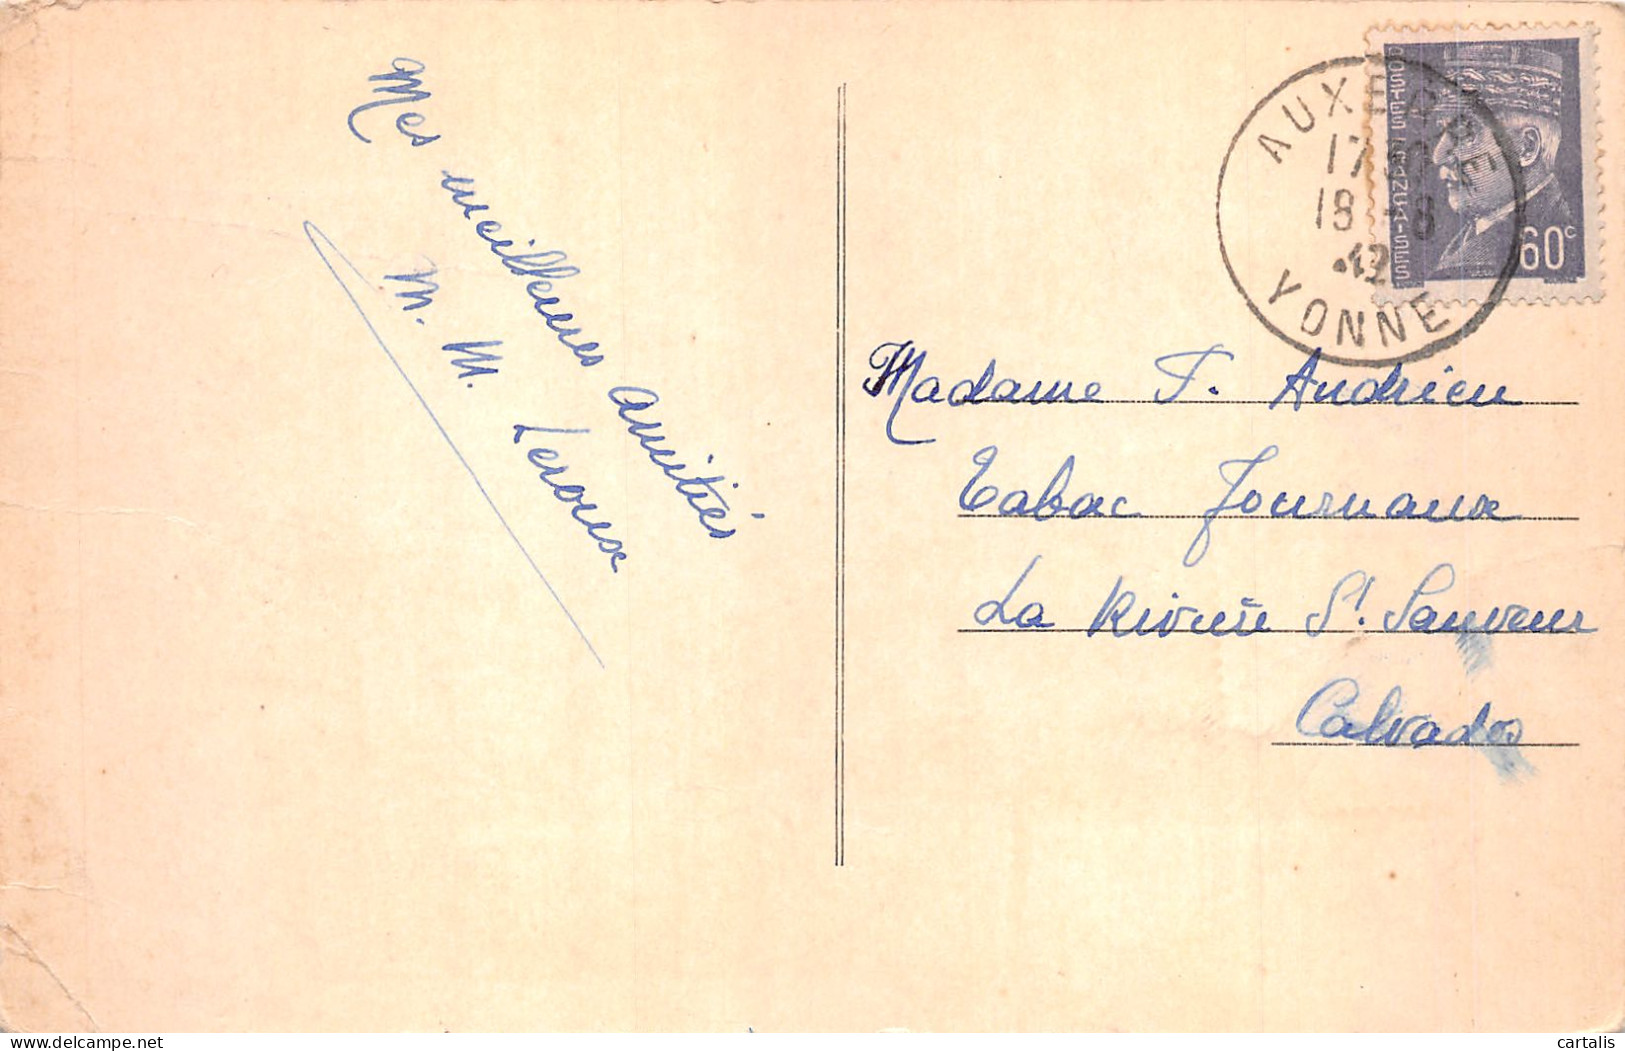 Mes meilleures amitiés
M. M. Leroux
POSTES FRANÇAISES
60c
AUXERRE
18 -8
42
YONNE
Madame F. Andrieu
Tabac Journaux
La Rivière St. Sauveur
Calvados
delcampe.net
cartalis